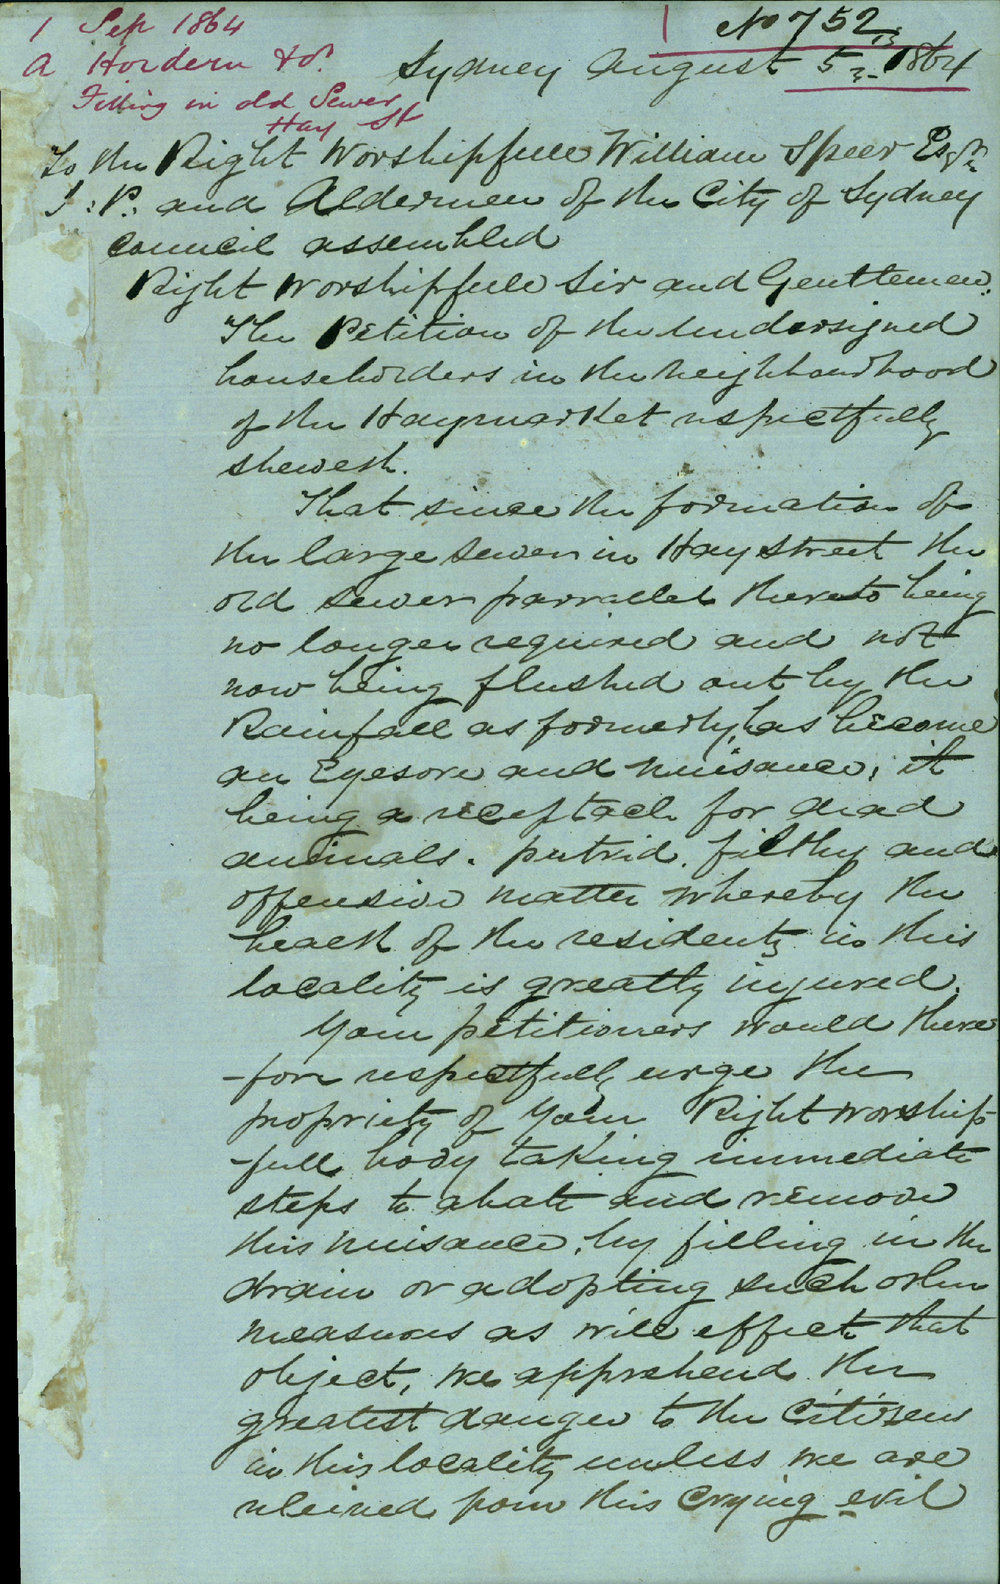 1 Sep 1864
A Hordern & Or.
Filling in old Sewer
Hay St
No 752
Sydney August 5 1864
To the Right Worshipfull William Speer Esqre
J: P: and Aldermen of the City of Sydney
Council assembled
Right Worshipfull Sir and Gentlemen:
The Petition of the Undersigned
householders in the neighbourhood
of the Haymarket respectfully
sheweth.
That since the formation of
the large Sewer in Hay Street the
old sewer parrallel thereto being
no longer required and not
now being flushed out by the
Rainfall as formerly, has become
an Eyesore and nuisance; it
being a receptacle for dead
animals. putrid. filthy and
offensive matter whereby the
health of the residents in this
locality is greatly injured.
Your petitioners would there
-fore respectfully urge the
propriety of Your Right worship-
-full body taking immediate
steps to abate and remove
this nuisance, by filling in the
drain or adopting such other
measures as will effect that
object, we apprehend the
greatest danger to the Citizens
in this locality unless we are
releived from this Crying evil